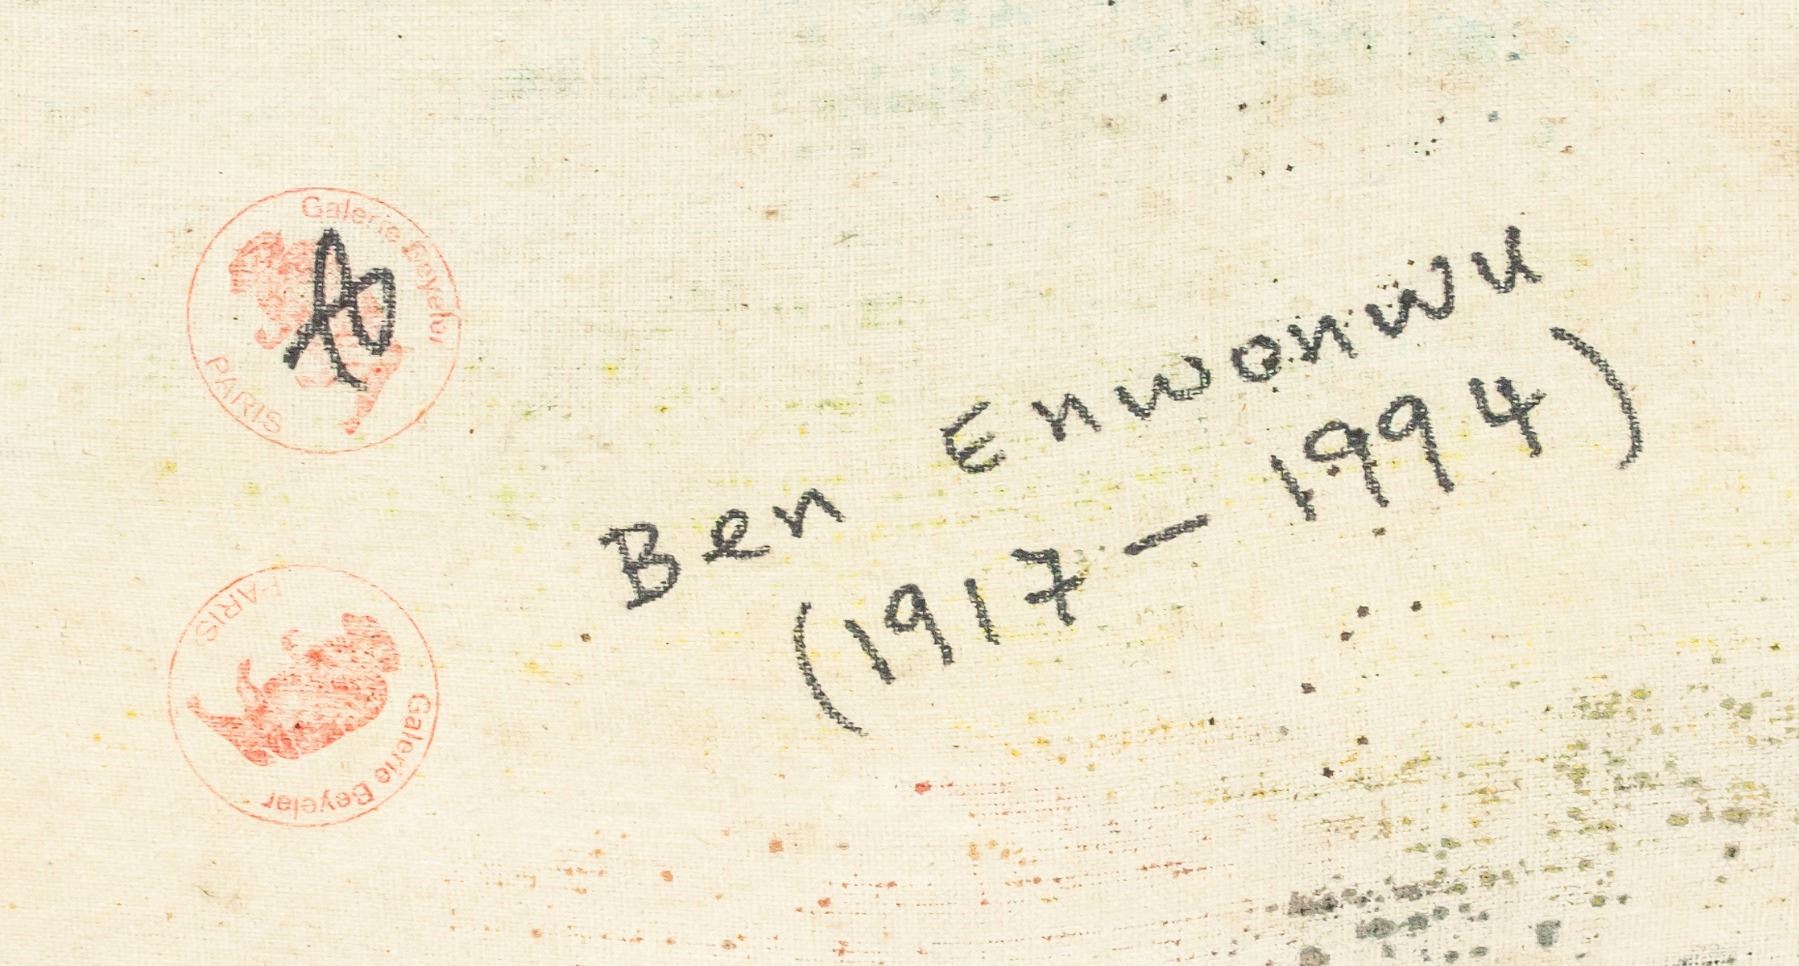 Galerie Beyeler
PARIS
Ben Enwonwu
(1917 - 1994)
PARIS
Galerie Beyeler